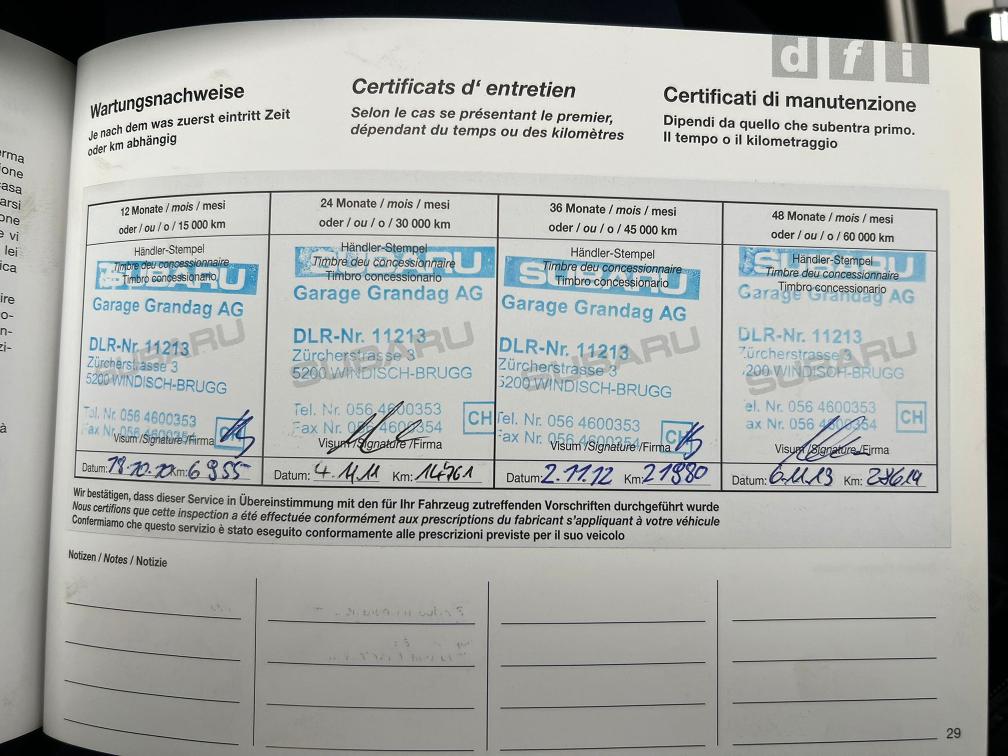 d f i
Wartungsnachweise
Je nach dem was zuerst eintritt Zeit
oder km abhängig
Certificats d' entretien
Selon le cas se présentant le premier,
dépendant du temps ou des kilomètres
Certificati di manutenzione
Dipendi da quello che subentra primo.
Il tempo o il kilometraggio
12 Monate / mois / mesi
oder / ou / o / 15 000 km
Händler-Stempel
Timbre deu concessionnaire
Timbro concessionario
SUBARU
Garage Grandag AG
DLR-Nr. 11213
SUBARU
Zürcherstrasse 3
5200 WINDISCH-BRUGG
Tel. Nr. 056 4600353
Fax Nr. 056 4600354
CH
Visum /Signature /Firma
Datum: 18.10.10 Km: 6955
24 Monate / mois / mesi
oder / ou / o / 30 000 km
Händler-Stempel
Timbre deu concessionnaire
Timbro concessionario
SUBARU
Garage Grandag AG
DLR-Nr. 11213
SUBARU
Zürcherstrasse 3
5200 WINDISCH-BRUGG
Tel. Nr. 056 4600353
Fax Nr. 056 4600354
CH
Visum /Signature /Firma
Datum: 4.11.11 Km: 14761
36 Monate / mois / mesi
oder / ou / o / 45 000 km
Händler-Stempel
Timbre deu concessionnaire
Timbro concessionario
SUBARU
Garage Grandag AG
DLR-Nr. 11213
SUBARU
Zürcherstrasse 3
5200 WINDISCH-BRUGG
Tel. Nr. 056 4600353
Fax Nr. 056 4600354
CH
Visum /Signature /Firma
Datum: 2.11.12 Km: 21980
48 Monate / mois / mesi
oder / ou / o / 60 000 km
Händler-Stempel
Timbre deu concessionnaire
Timbro concessionario
SUBARU
Garage Grandag AG
DLR-Nr. 11213
SUBARU
Zürcherstrasse 3
5200 WINDISCH-BRUGG
Tel. Nr. 056 4600353
Fax Nr. 056 4600354
CH
Visum /Signature /Firma
Datum: 6.11.13 Km: 28614
Wir bestätigen, dass dieser Service in Übereinstimmung mit den für Ihr Fahrzeug zutreffenden Vorschriften durchgeführt wurde
Nous certifions que cette inspection a été effectuée conformément aux prescriptions du fabricant s'appliquant à votre véhicule
Confermiamo che questo servizio è stato eseguito conformamente alle prescrizioni previste per il suo veicolo
Notizen / Notes / Notizie
29